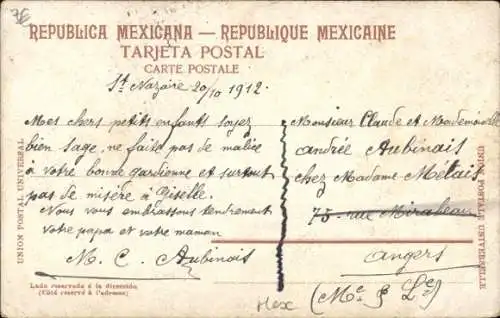 7E
REPUBLICA MEXICANA — REPUBLIQUE MEXICAINE
TARJETA POSTAL
CARTE POSTALE
St Nazaire 20/10 1912.
Mes chers petits enfants soyez
bien sage, ne faite pas de malice
à votre bonne gardienne et surtout
pas de misère à Giselle.
Nous vous embrassons tendrement
votre papa et votre maman
M. C. Aubinais
Monsieur Claude et Mademoiselle
andrée Aubinais
chez Madame Métais
75 rue Mirabeau
angers
(Me & Le)
UNION POSTAL UNIVERSAL
UNION POSTALE UNIVERSELLE
Lado reservado á la dirección
(Côté reservé à l'adresse)
Mex